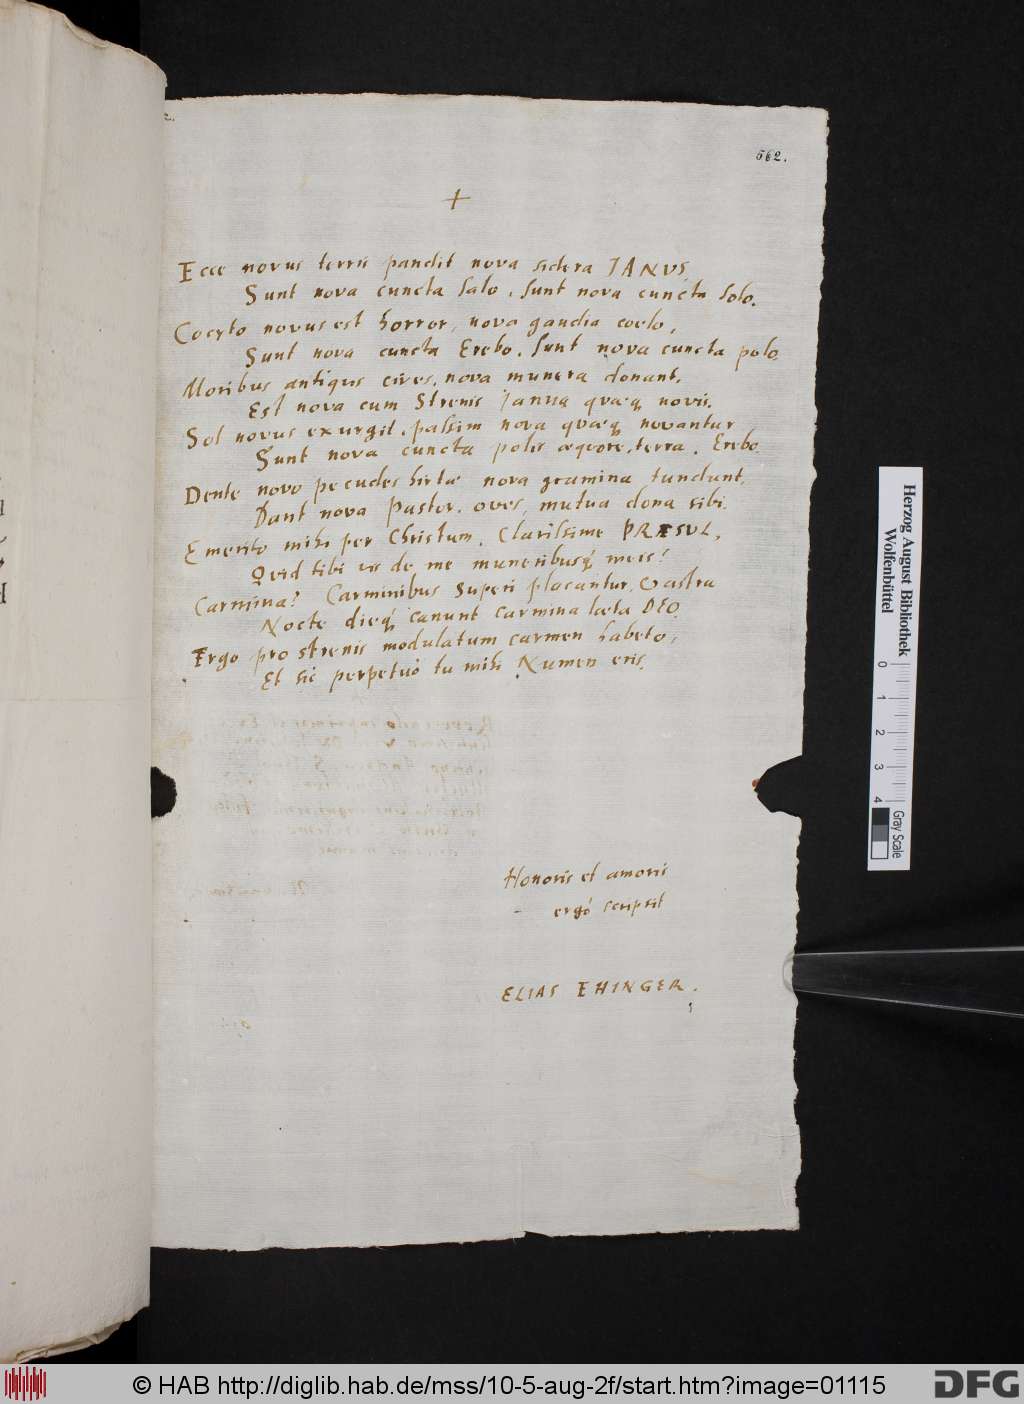 562.
+
Ecce novus terris pandit nova sidera IANVS,
Sunt nova cuncta salo, sunt nova cuncta solo.
Cocyto novus est horror, nova gaudia coelo,
Sunt nova cuncta Erebo, sunt nova cuncta polo.
Moribus antiquis cives, nova munera donant,
Est nova cum Strenis Ianua quæq novis.
Sol novus exurgit, passim nova quæq novantur
Sunt nova cuncta polis æquore, terra, Erebo.
Dente novo pecudes hirtæ nova gramina tundunt,
Dant nova Pastor, oves, mutua dona sibi.
Emerito mihi per Christum, Clarissime PRÆSUL,
Quid tibi vis de me muneribusq́ meis?
Carmina? Carminibus Superi placantur, & astra
Nocte dieq́ canunt carmina læta DEO.
Ergo pro strenis modulatum carmen habeto,
Et sic perpetuò tu mihi Numen eris.
Honoris et amoris
ergó scripsit
ELIAS EHINGER.
Herzog August Bibliothek
Wolfenbüttel
0 1 2 3 4
Gray Scale
© HAB http://diglib.hab.de/mss/10-5-aug-2f/start.htm?image=01115
DFG